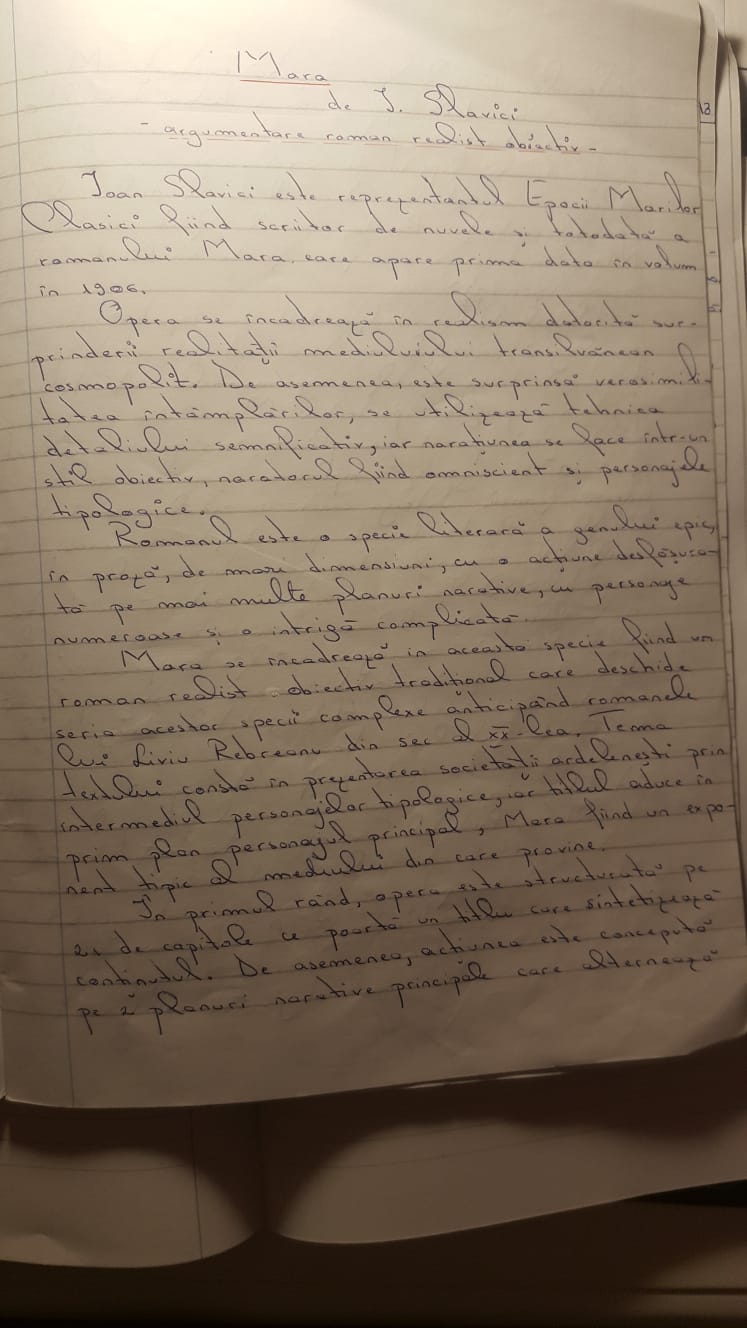 Mara
de I. Slavici
- argumentare roman realist obiectiv -
13
Ioan Slavici este reprezentantul Epocii Marilor
Clasici fiind scriitor de nuvele și totodată a
romanului Mara, care apare prima dată în volum
în 1906.
Opera se încadrează în realism datorită sur-
prinderii realității mediului transilvănean
cosmopolit. De asemenea, este surprinsă verosimili-
tatea întâmplărilor, se utilizează tehnica
detaliului semnificativ, iar narațiunea se face într-un
stil obiectiv, naratorul fiind omniscient și personajele
tipologice.
Romanul este o specie literară a genului epic,
în proză, de mari dimensiuni, cu o acțiune desfășura-
tă pe mai multe planuri narative, cu personaje
numeroase și o intrigă complicată.
Mara se încadrează în aceasta specie fiind un
roman realist obiectiv traditional care deschide
seria acestor specii complexe anticipând romanele
lui Liviu Rebreanu din sec al XX-lea. Tema
textului constă în prezentarea societății ardelenești prin
intermediul personajelor tipologice, iar titlul aduce în
prim plan personajul principal, Mara fiind un expo-
nent tipic al mediului din care provine.
În primul rând, opera este structurată pe
21 de capitole ce poartă un titlu care sintetizează
continutul. De asemenea, actiunea este concepută
pe 2 planuri narative principale care alternează